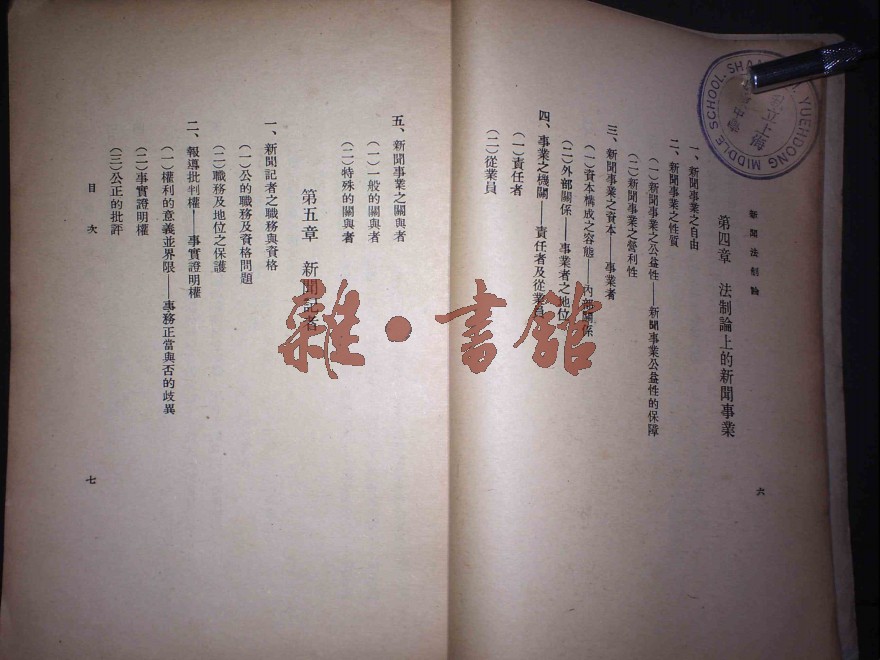 新聞法制論
第四章　法制論上的新聞事業
一、新聞事業之自由
二、新聞事業之性質
(一)新聞事業之公益性——新聞事業公益性的保障
(二)新聞事業之營利性
三、新聞事業之資本——事業者
(一)資本構成之容態——內部關係
(二)外部關係——事業者之地位
四、事業之機關——責任者及從業員
(一)責任者
(二)從業員
六
五、新聞事業之關與者
(一)一般的關與者
(二)特殊的關與者
第五章　新聞記者
一、新聞記者之職務與資格
(一)公的職務及資格問題
(二)職務及地位之保護
二、報導批判權——事實證明權
(一)權利的意義並界限——事務正當與否的歧異
(二)事實證明權
(三)公正的批評
目次
七
雜·書館
YUEHDONG MIDDLE SCHOOL. SHA